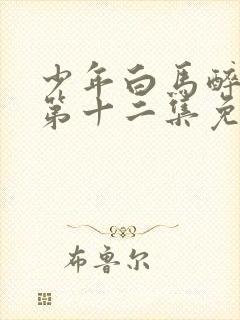 少年白馬醉
第十二集免
布鲁尔